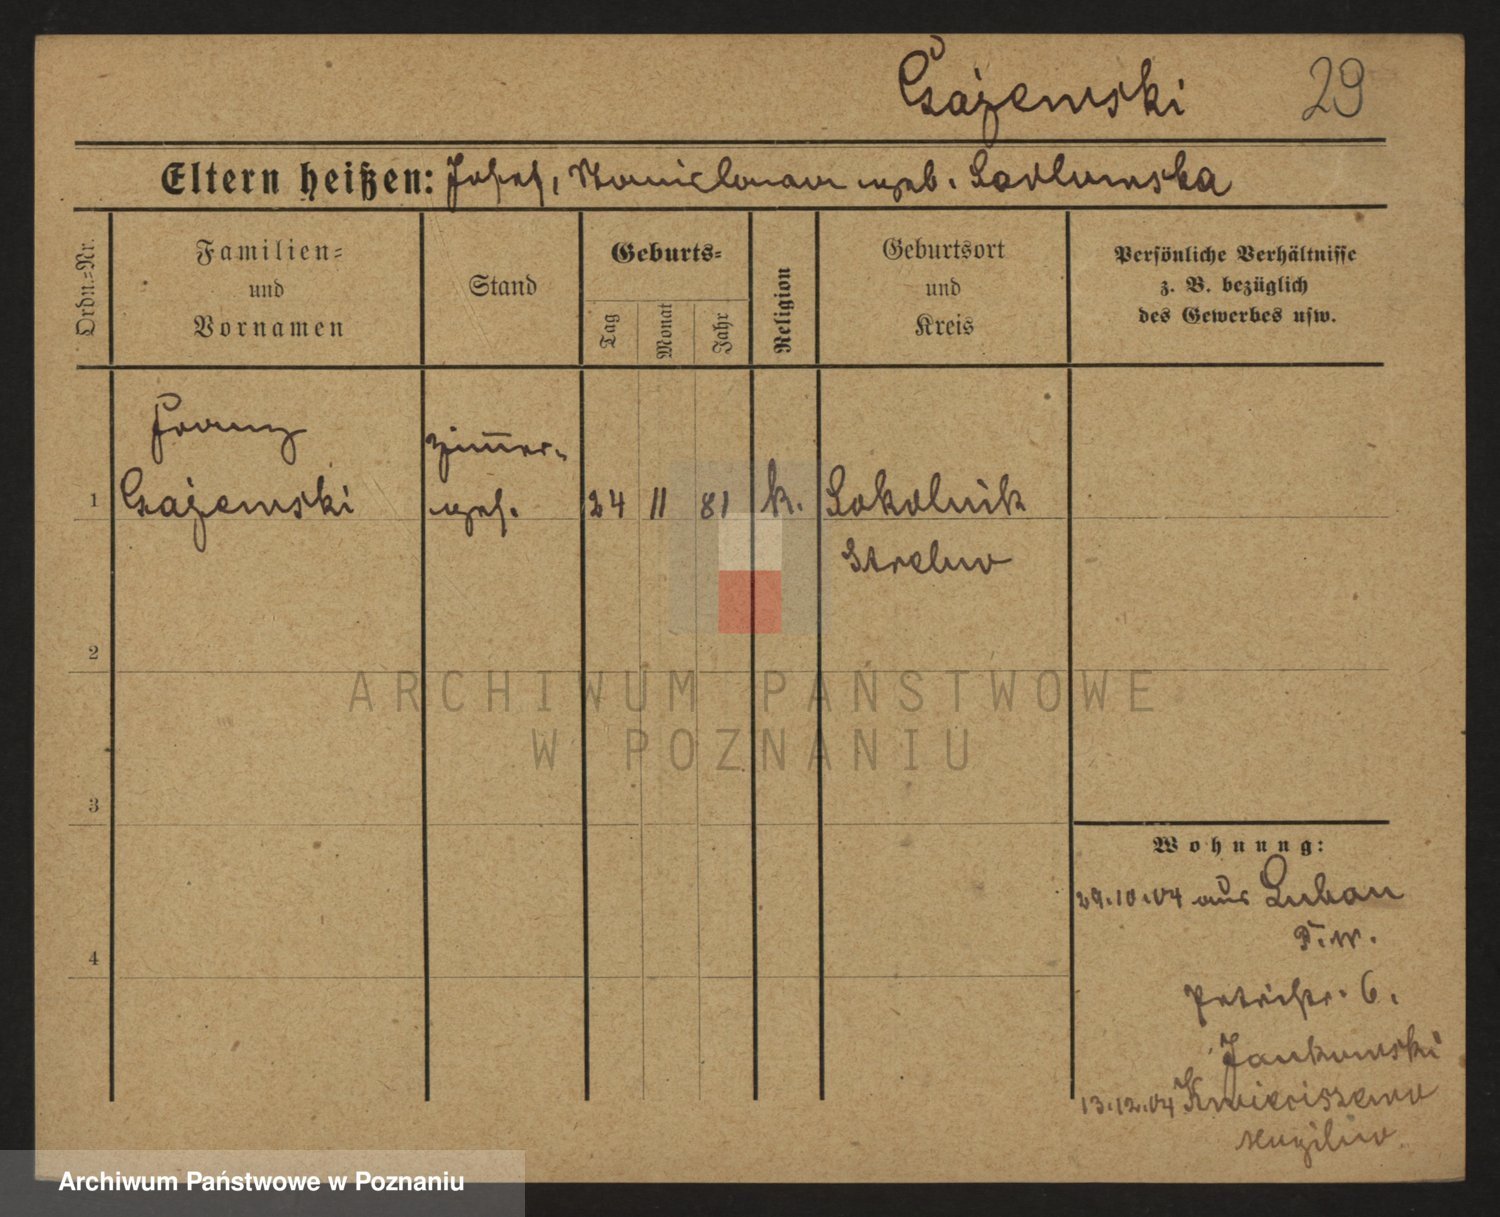 Gajewski 29
Eltern heißen: Josef, Stanislawa geb. Sadlowska
Ordn.-Nr.
Familien-
und
Vornamen
Stand
Geburts-
Tag
Monat
Jahr
Religion
Geburtsort
und
Kreis
Persönliche Verhältnisse
z. B. bezüglich
des Gewerbes usw.
Franz
Zim̄er-
1 Gajewski gesl. 24 11 81 k. Sokolnik
Strelno
2
3
4
Wohnung:
29.10.04 aus Luban
P.W.
Petristr. 6.
Jankowski
13.12.04 Kwieciszewo
Mogilno
ARCHIWUM PAŃSTWOWE
W POZNANIU
Archiwum Państwowe w Poznaniu